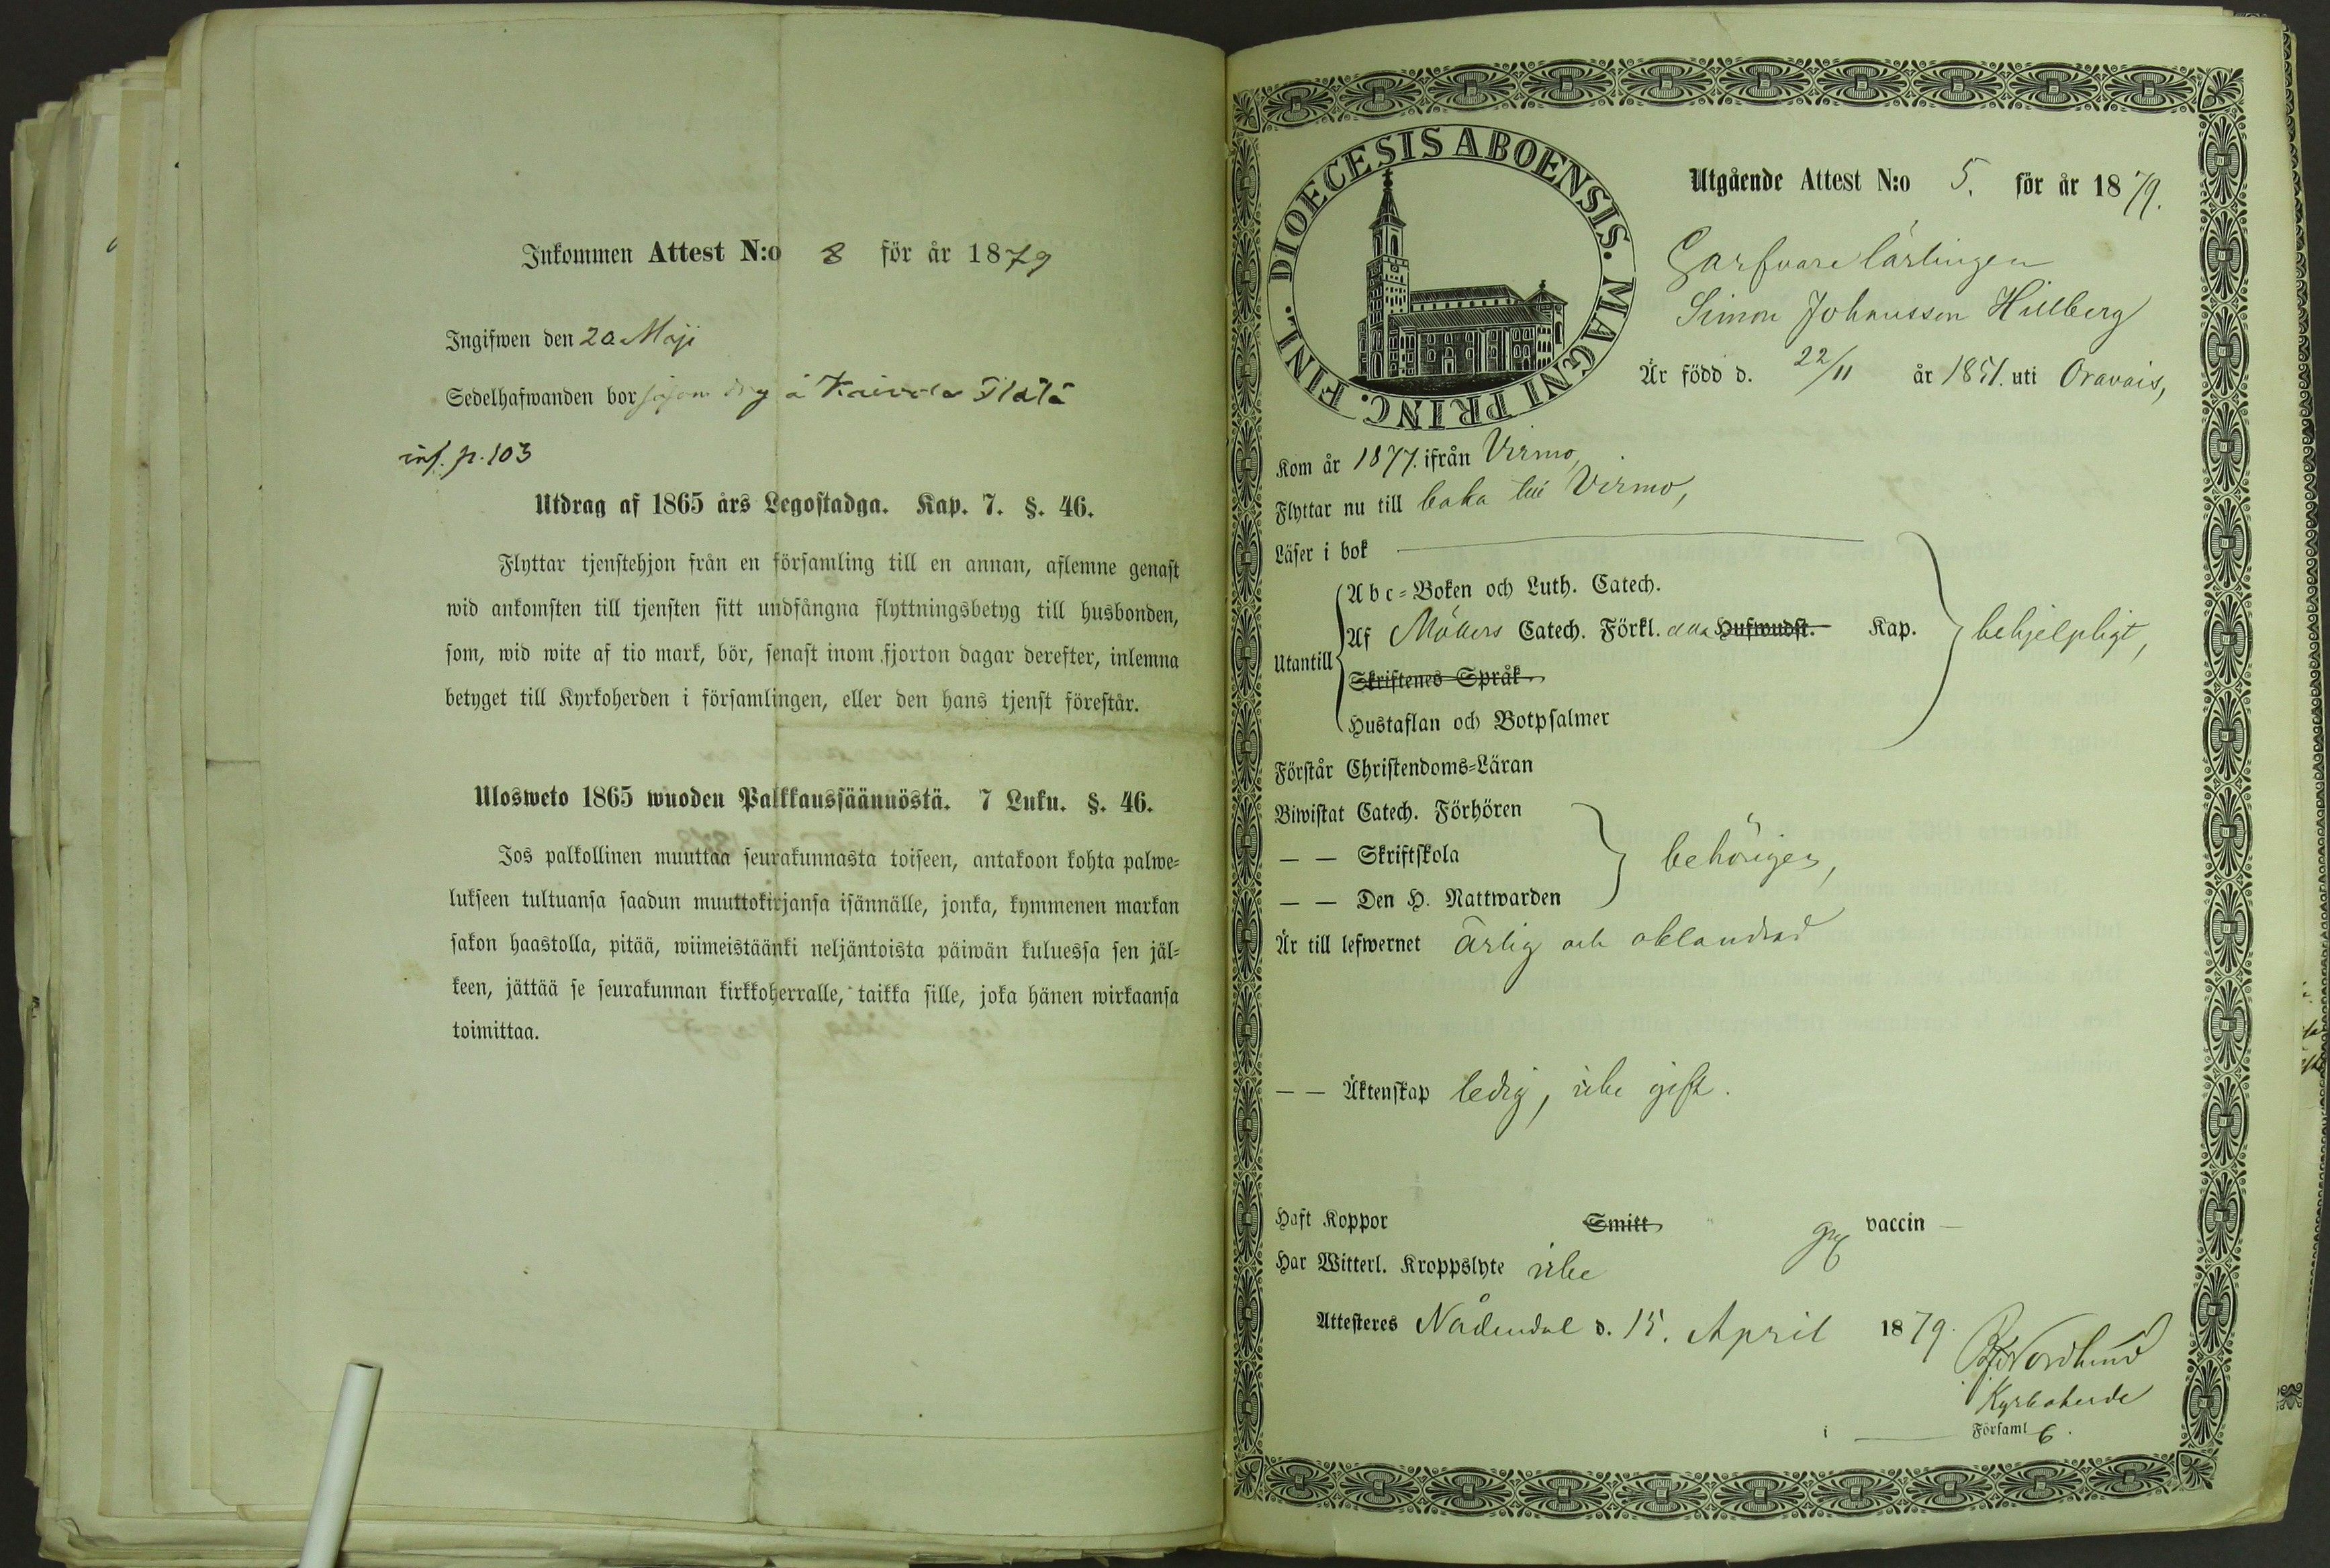 Inkommen Attest N:o 8 för år 1879
Ingifwen den 20 Maji
Sedelhafwanden bor såsom drg å Kaivola
inf. p. 103
Utdrag af 1865 års Legostadga. Kap. 7. §. 46.
Flyttar tjenstehjon från en församling till en annan, aflemne genast
wid ankomsten till tjensten sitt undfångna flyttningsbetyg till husbonden,
som, wid wite af tio mark, bör, senast inom fjorton dagar derefter, inlemna
betyget till Kyrkoherden i församlingen, eller den hans tjenst förestår.
Ulosweto 1865 wuoden Palkkaussäännöstä. 7 Luku. §. 46.
Jos palkollinen muuttaa seurakunnasta toiseen, antakoon kohta palwe-
lukseen tultuansa saadun muuttokirjansa isännälle, jonka, kymmenen markan
sakon haastolla, pitää, wiimeistäänki neljäntoista päiwän kuluessa sen jäl-
keen, jättää se seurakunnan kirkkoherralle, taikka sille, joka hänen wirkaansa
toimittaa.
FINL. DIOECESIS ABOENSIS. MAGNI PRINC.
Utgående Attest N:o 5. för år 1879.
Garfvarelärlingen
Simon Johansson Hillberg
Är född d. 22/11 år 1851. uti Oravais,
Kom år 1877. ifrån Virmo,
Flyttar nu till baka till Virmo,
Läser i bok
Utantill
Abc-Boken och Luth. Catech.
Af Möllers Catech. Förkl. alla Hufwudst. Kap. behjelpligt,
Skriftenes Språk
Hustaflan och Botpsalmer
Förstår Christendoms-Läran
Biwistat Catech. Förhören
— — Skriftskola behörigen,
— — Den H. Nattwarden
Är till lefwernet ärlig och oklandrad
— — Äktenskap ledig, icke gift.
Haft Koppor Smitt vaccin —
Har Witterl. Kroppslyte icke
Attesteres Nådendal d. 15. April 1879.
Nordlund
Kyrkoherde
i Församl